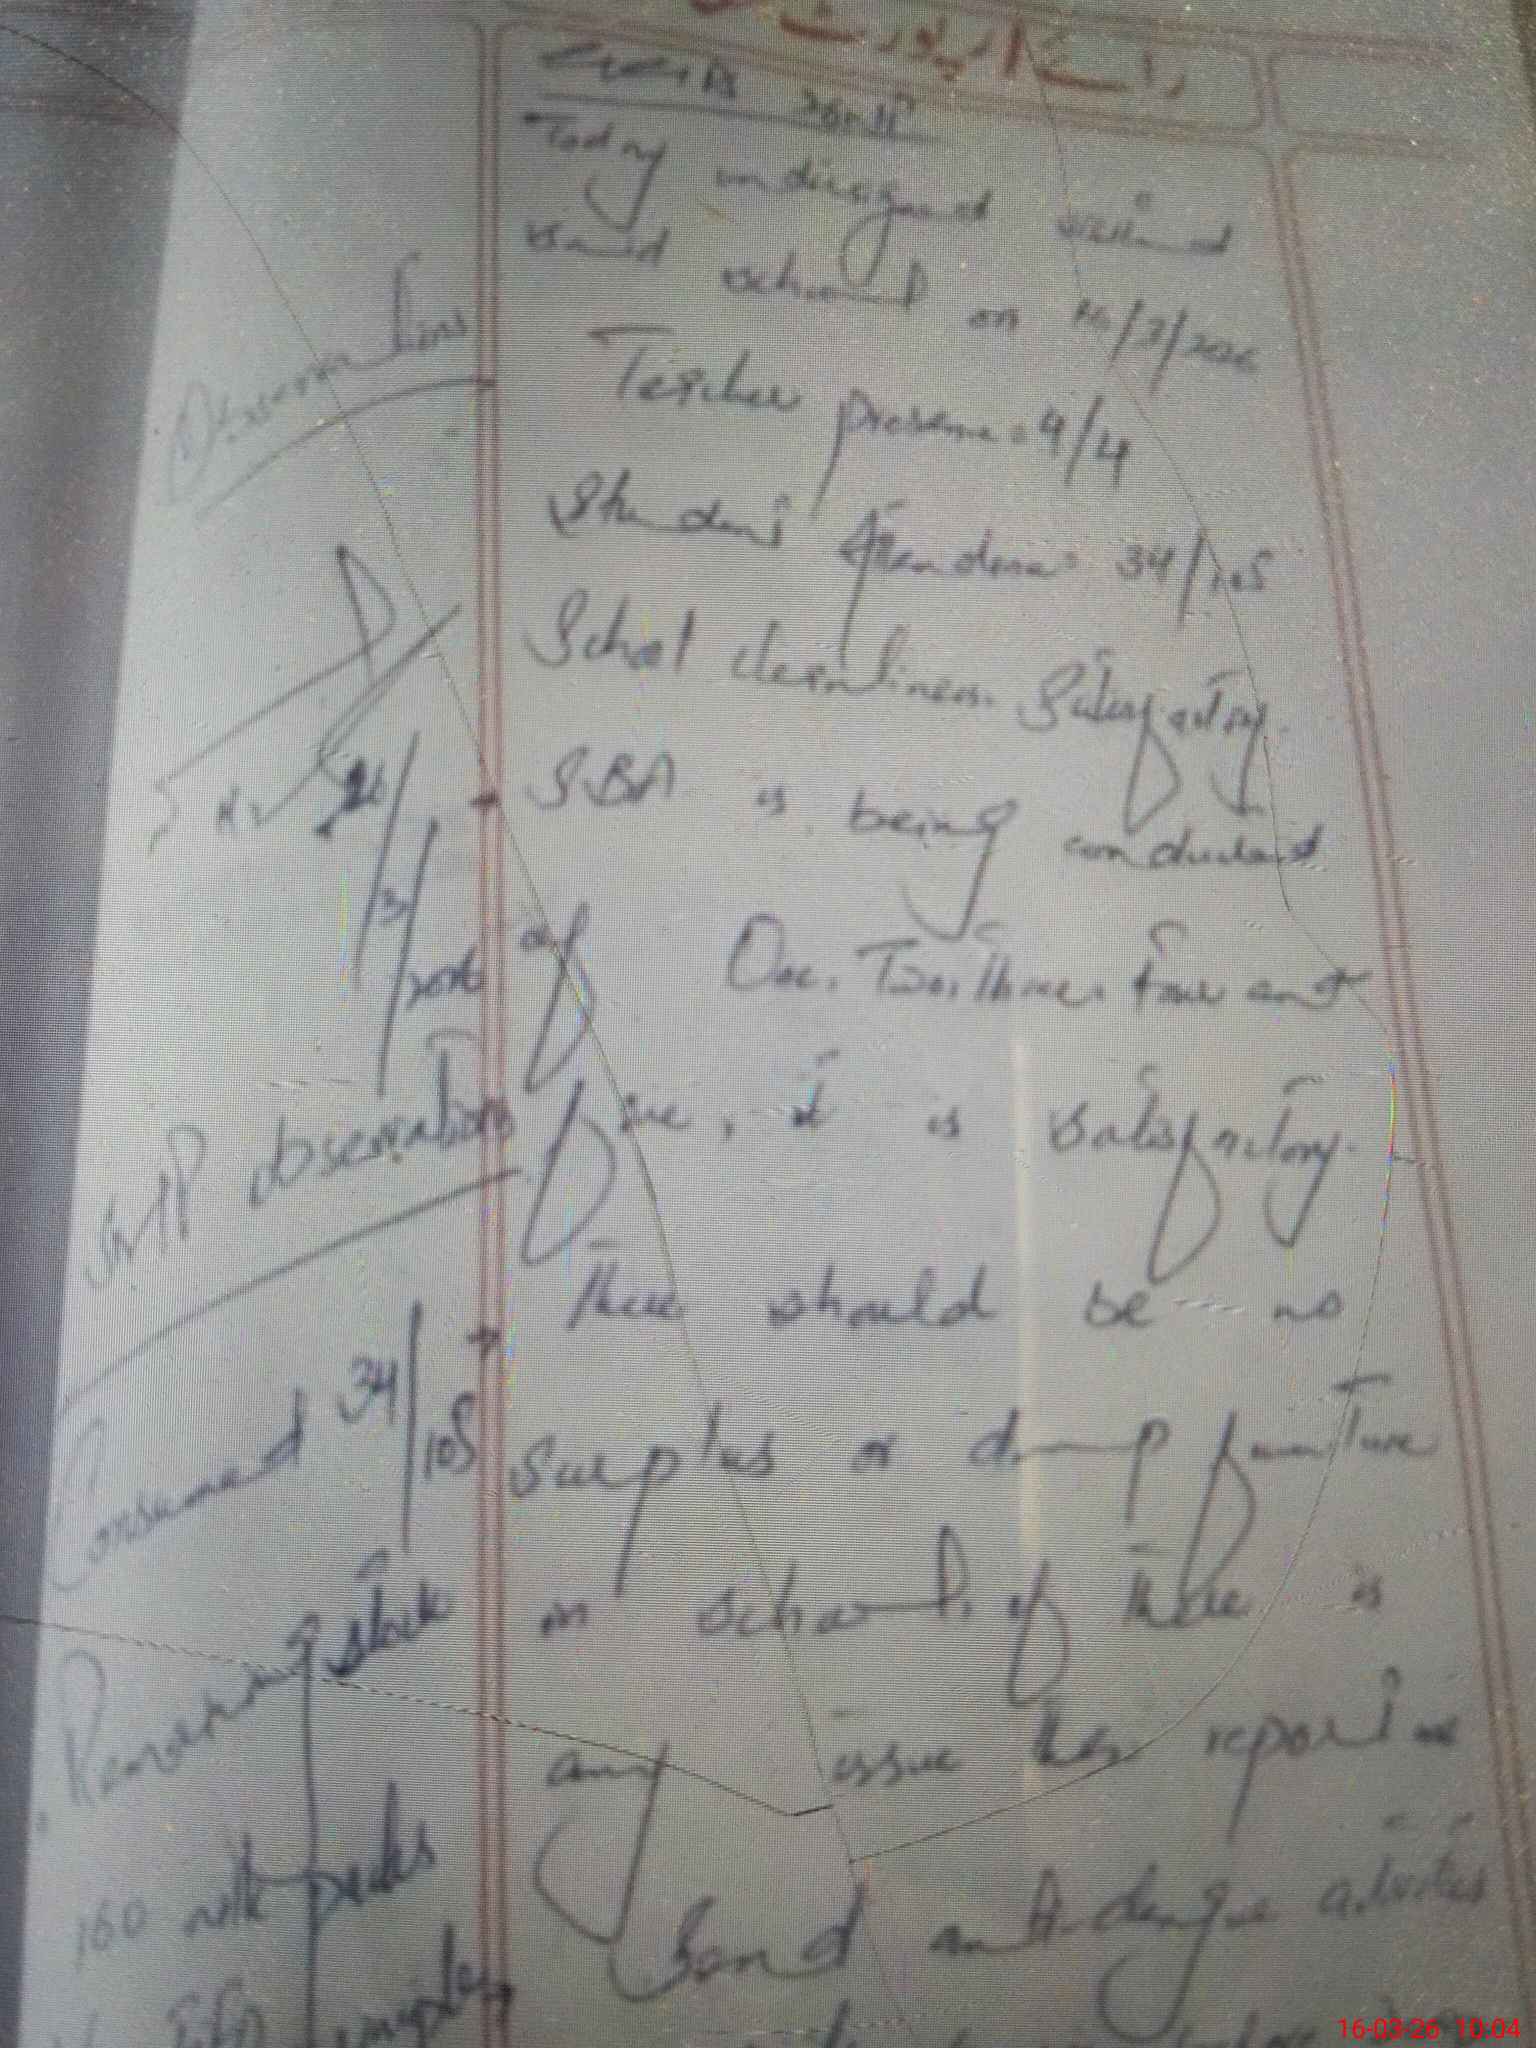 رائے اپورٹ
Today undersigned visited
said school on 16/3/2026
Teacher presence 4/4
Student Attendance 34/105
School cleanliness Satisfactory.
→ SBA is being conducted
of One, Two, three, four and
five, it is satisfactory.
→ There should be no
surplus or dump furniture
in school, if there is
any issue then report me
Send anti-dengue activities
Observations
16/3/2026
SMP observations
Consumed 34/105
Remaining stock
160 milk packs
empty
16-03-26 10:04